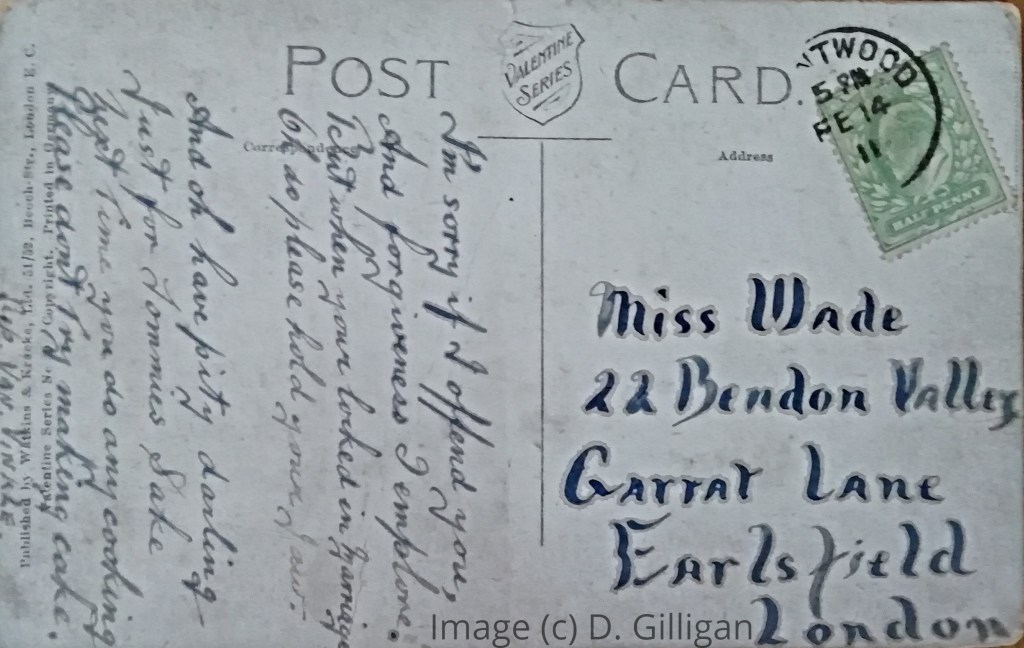 POST CARD.
VALENTINE
SERIES
Correspondence
Address
NTWOOD
5 PM
FE 14
11
HALF PENNY
I'm sorry if I offend you,
And forgiveness I emplore.
But when your locked in
Oh do please hold your jaw.
And oh have pity darling
Just for Tommies Sake
Next time you do any cooking
Please dont try making cake.
Miss Wade
22 Bendon Valley
Garrat Lane
Earlsfield
London
Published by Watkins & Kracke, Ltd. 31/32, Beech Str., London E. C.
Valentine Series Copyright. Printed in
Image (c) D. Gilligan